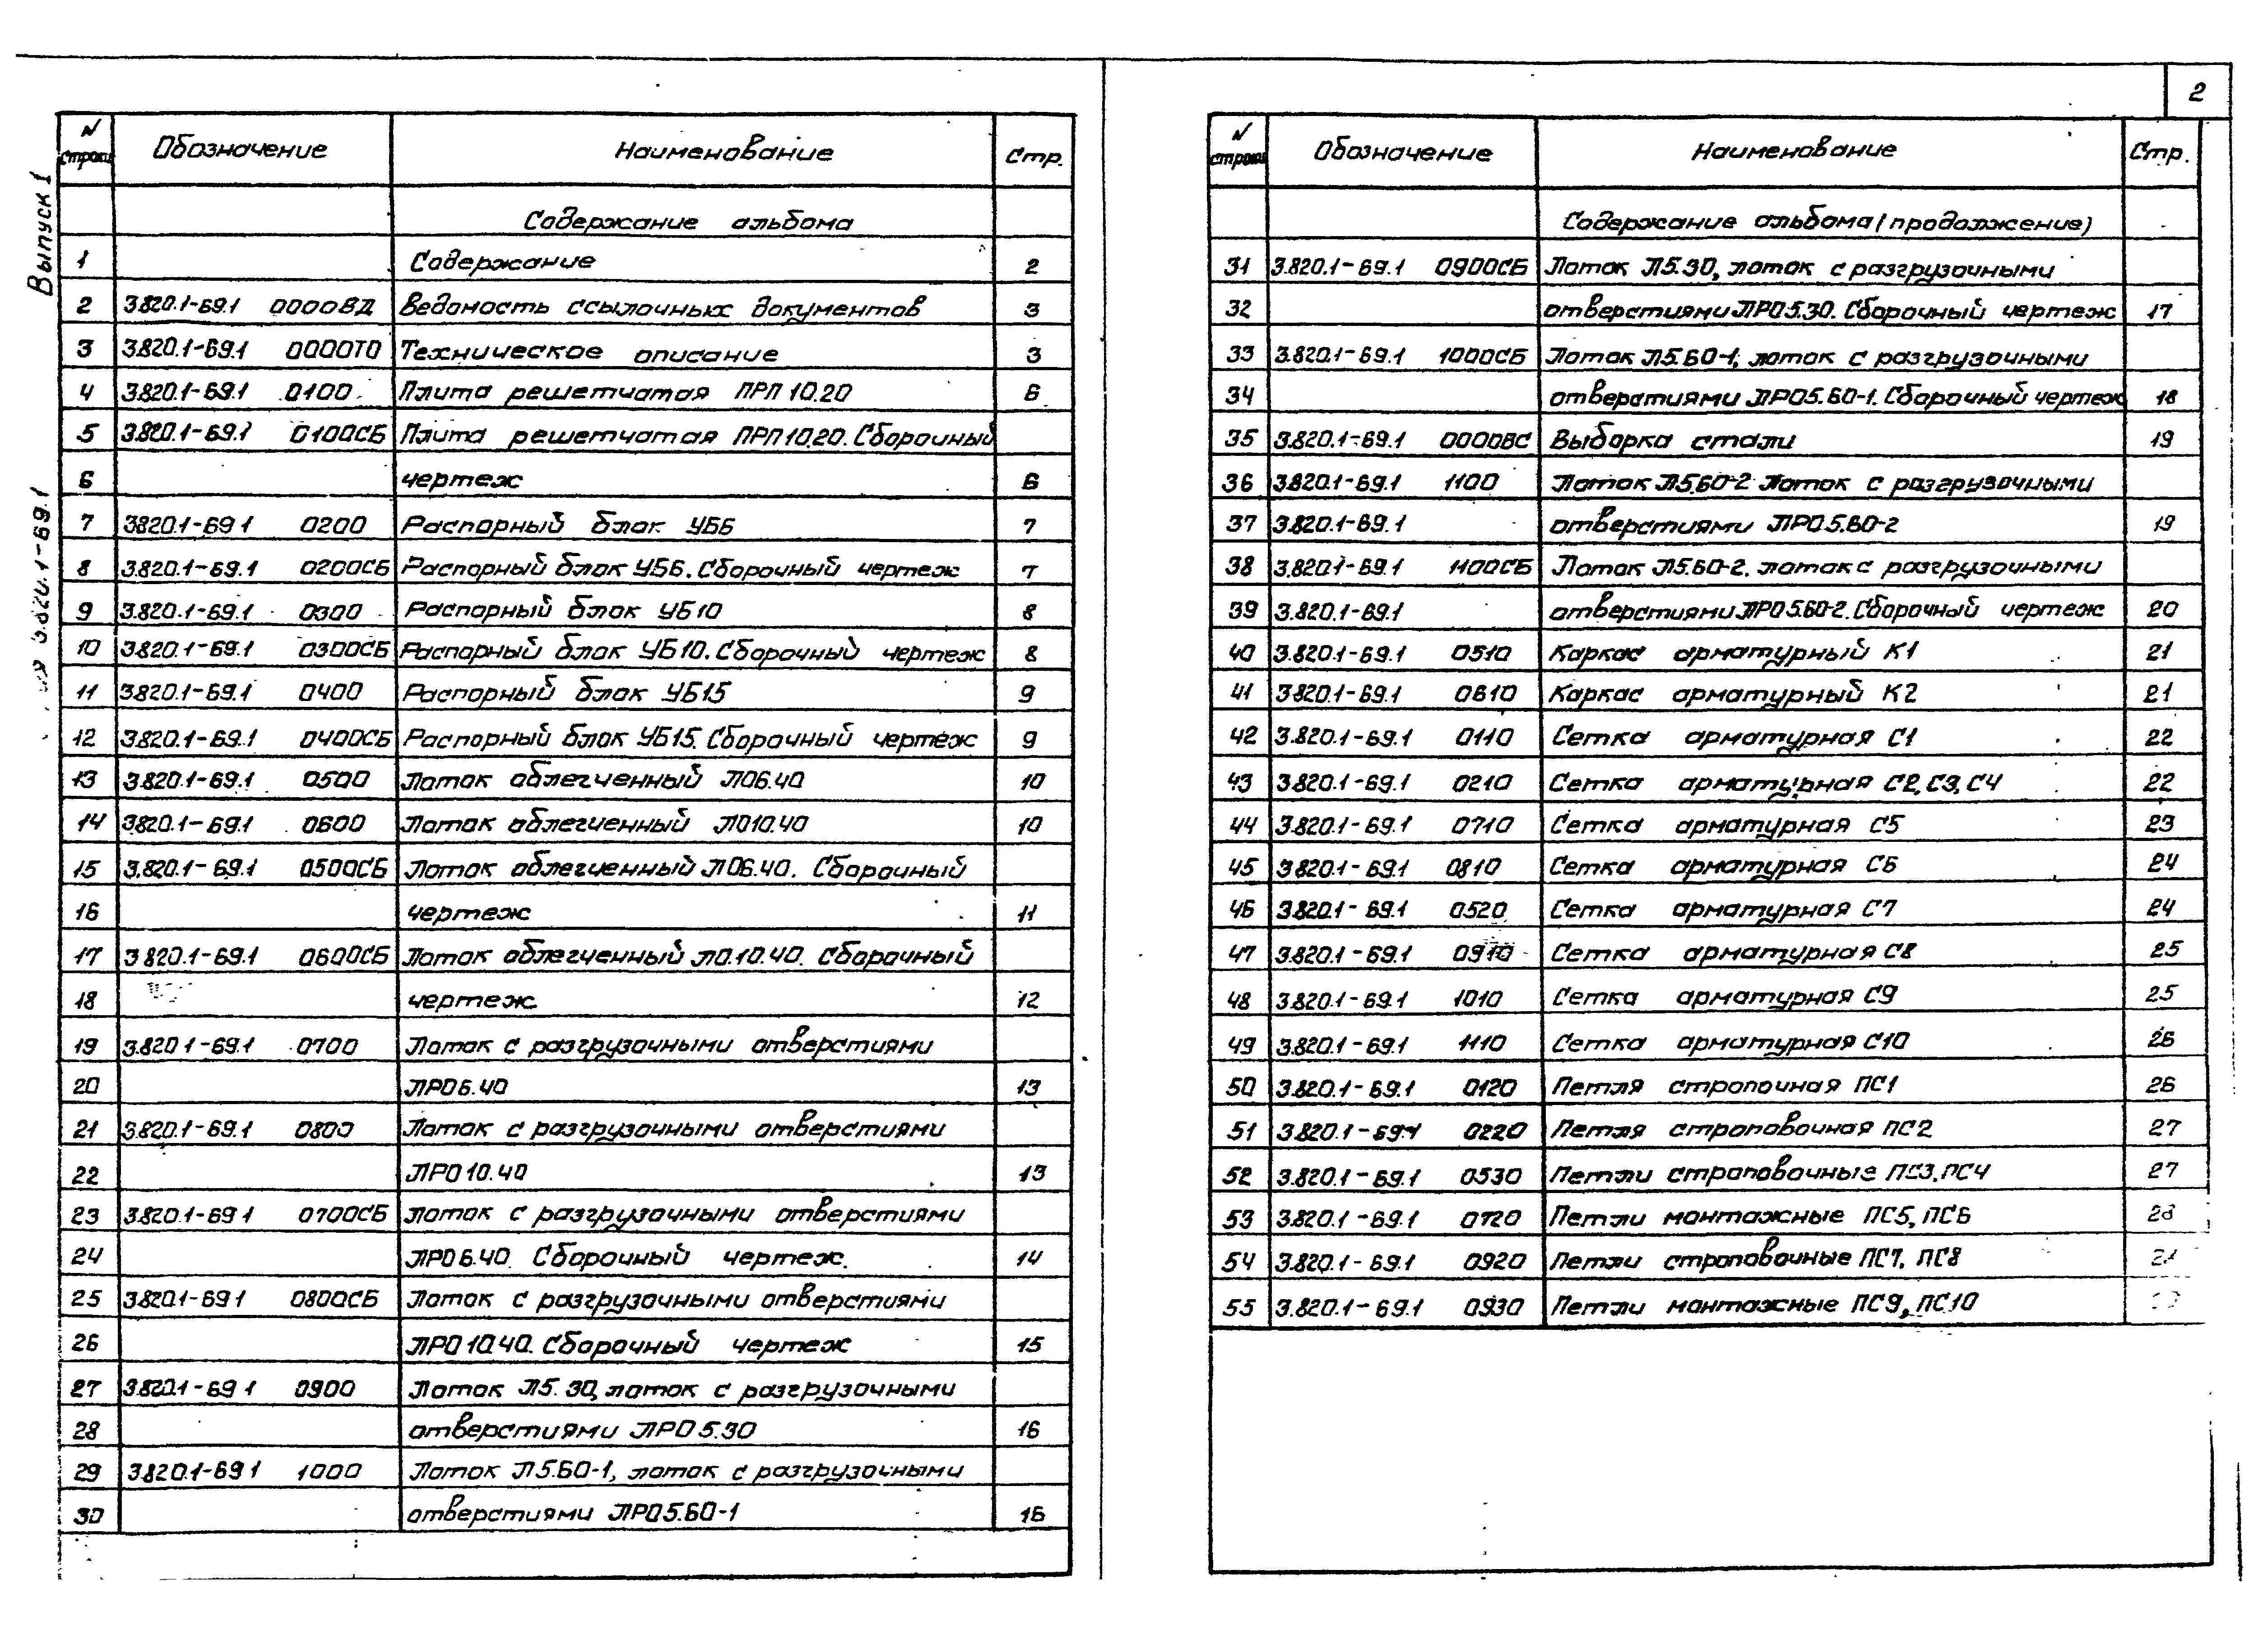 2
Выпуск 1
3.820.1-69.1
N строки Обозначение Наименование Стр.
Содержание альбома
1 Содержание 2
2 3.820.1-69.1 0000ВД Ведомость ссылочных документов 3
3 3.820.1-69.1 0000ТО Техническое описание 3
4 3.820.1-69.1 0100 Плита решетчатая ПРП 10.20 6
5 3.820.1-69.1 0100СБ Плита решетчатая ПРП 10.20. Сборочный
6 чертеж 6
7 3.820.1-69.1 0200 Распорный блок УБ6 7
8 3.820.1-69.1 0200СБ Распорный блок УБ6. Сборочный чертеж 7
9 3.820.1-69.1 0300 Распорный блок УБ10 8
10 3.820.1-69.1 0300СБ Распорный блок УБ10. Сборочный чертеж 8
11 3.820.1-69.1 0400 Распорный блок УБ15 9
12 3.820.1-69.1 0400СБ Распорный блок УБ15. Сборочный чертеж 9
13 3.820.1-69.1 0500 Лоток облегченный ЛО6.40 10
14 3.820.1-69.1 0600 Лоток облегченный ЛО10.40 10
15 3.820.1-69.1 0500СБ Лоток облегченный ЛО6.40. Сборочный
16 чертеж 11
17 3.820.1-69.1 0600СБ Лоток облегченный ЛО.10.40. Сборочный
18 чертеж 12
19 3.820.1-69.1 0700 Лоток с разгрузочными отверстиями
20 ЛРО6.40 13
21 3.820.1-69.1 0800 Лоток с разгрузочными отверстиями
22 ЛРО10.40 13
23 3.820.1-69.1 0700СБ Лоток с разгрузочными отверстиями
24 ЛРО6.40. Сборочный чертеж. 14
25 3.820.1-69.1 0800СБ Лоток с разгрузочными отверстиями
26 ЛРО10.40. Сборочный чертеж 15
27 3.820.1-69.1 0900 Лоток Л5.30, лоток с разгрузочными
28 отверстиями ЛРО5.30 16
29 3.820.1-69.1 1000 Лоток Л5.60-1, лоток с разгрузочными
30 отверстиями ЛРО5.60-1 16
N строки Обозначение Наименование Стр.
Содержание альбома (продолжение)
31 3.820.1-69.1 0900СБ Лоток Л5.30, лоток с разгрузочными
32 отверстиями ЛРО5.30. Сборочный чертеж 17
33 3.820.1-69.1 1000СБ Лоток Л5.60-1, лоток с разгрузочными
34 отверстиями ЛРО5.60-1. Сборочный чертеж 18
35 3.820.1-69.1 0000ВС Выборка стали 19
36 3.820.1-69.1 1100 Лоток Л5.60-2 Лоток с разгрузочными
37 3.820.1-69.1 отверстиями ЛРО5.60-2 19
38 3.820.1-69.1 1100СБ Лоток Л5.60-2. лоток с разгрузочными
39 3.820.1-69.1 отверстиями ЛРО5.60-2. Сборочный чертеж 20
40 3.820.1-69.1 0510 Каркас арматурный К1 21
41 3.820.1-69.1 0610 Каркас арматурный К2 21
42 3.820.1-69.1 0110 Сетка арматурная С1 22
43 3.820.1-69.1 0210 Сетка арматурная С2, С3, С4 22
44 3.820.1-69.1 0710 Сетка арматурная С5 23
45 3.820.1-69.1 0810 Сетка арматурная С6 24
46 3.820.1-69.1 0520 Сетка арматурная С7 24
47 3.820.1-69.1 0910 Сетка арматурная С8 25
48 3.820.1-69.1 1010 Сетка арматурная С9 25
49 3.820.1-69.1 1110 Сетка арматурная С10 26
50 3.820.1-69.1 0120 Петля стропочная ПС1 26
51 3.820.1-69.1 0220 Петля строповочная ПС2 27
52 3.820.1-69.1 0530 Петли строповочные ПС3, ПС4 27
53 3.820.1-69.1 0720 Петли монтажные ПС5, ПС6 28
54 3.820.1-69.1 0920 Петли строповочные ПС7, ПС8
55 3.820.1-69.1 0930 Петли монтажные ПС9, ПС10